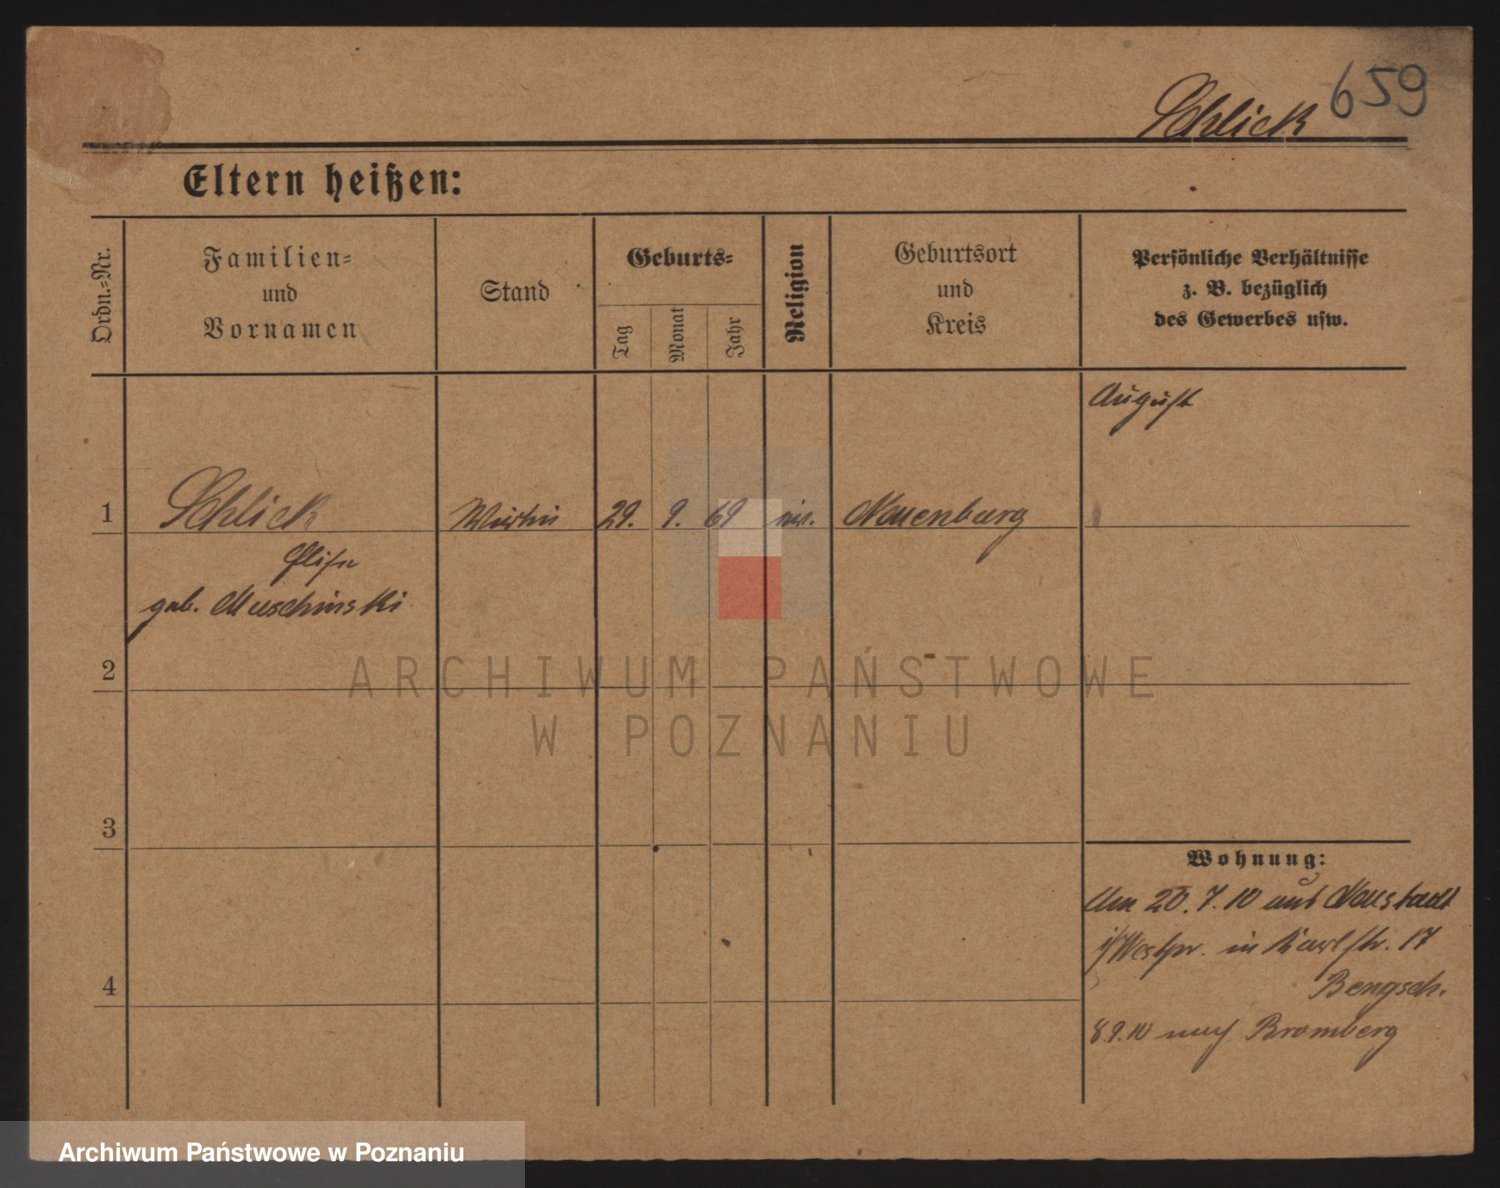 Schlick 659
Eltern heißen:
Ordn.-Nr.
Familien-
und
Vornamen
Stand
Geburts-
Tag
Monat
Jahr
Religion
Geburtsort
und
Kreis
Persönliche Verhältnisse
z. B. bezüglich
des Gewerbes usw.
August
1 Schlick Wirtin 29. 9. 69 Neuenburg
Elise
geb. Muschinski
2
3
4
Wohnung:
Am 20. 7. 10 aus Neustadt
i/Westpr. in Karlstr. 17
Bengsch.
8 9. 10 nach Bromberg
ARCHIWUM PAŃSTWOWE
W POZNANIU
Archiwum Państwowe w Poznaniu